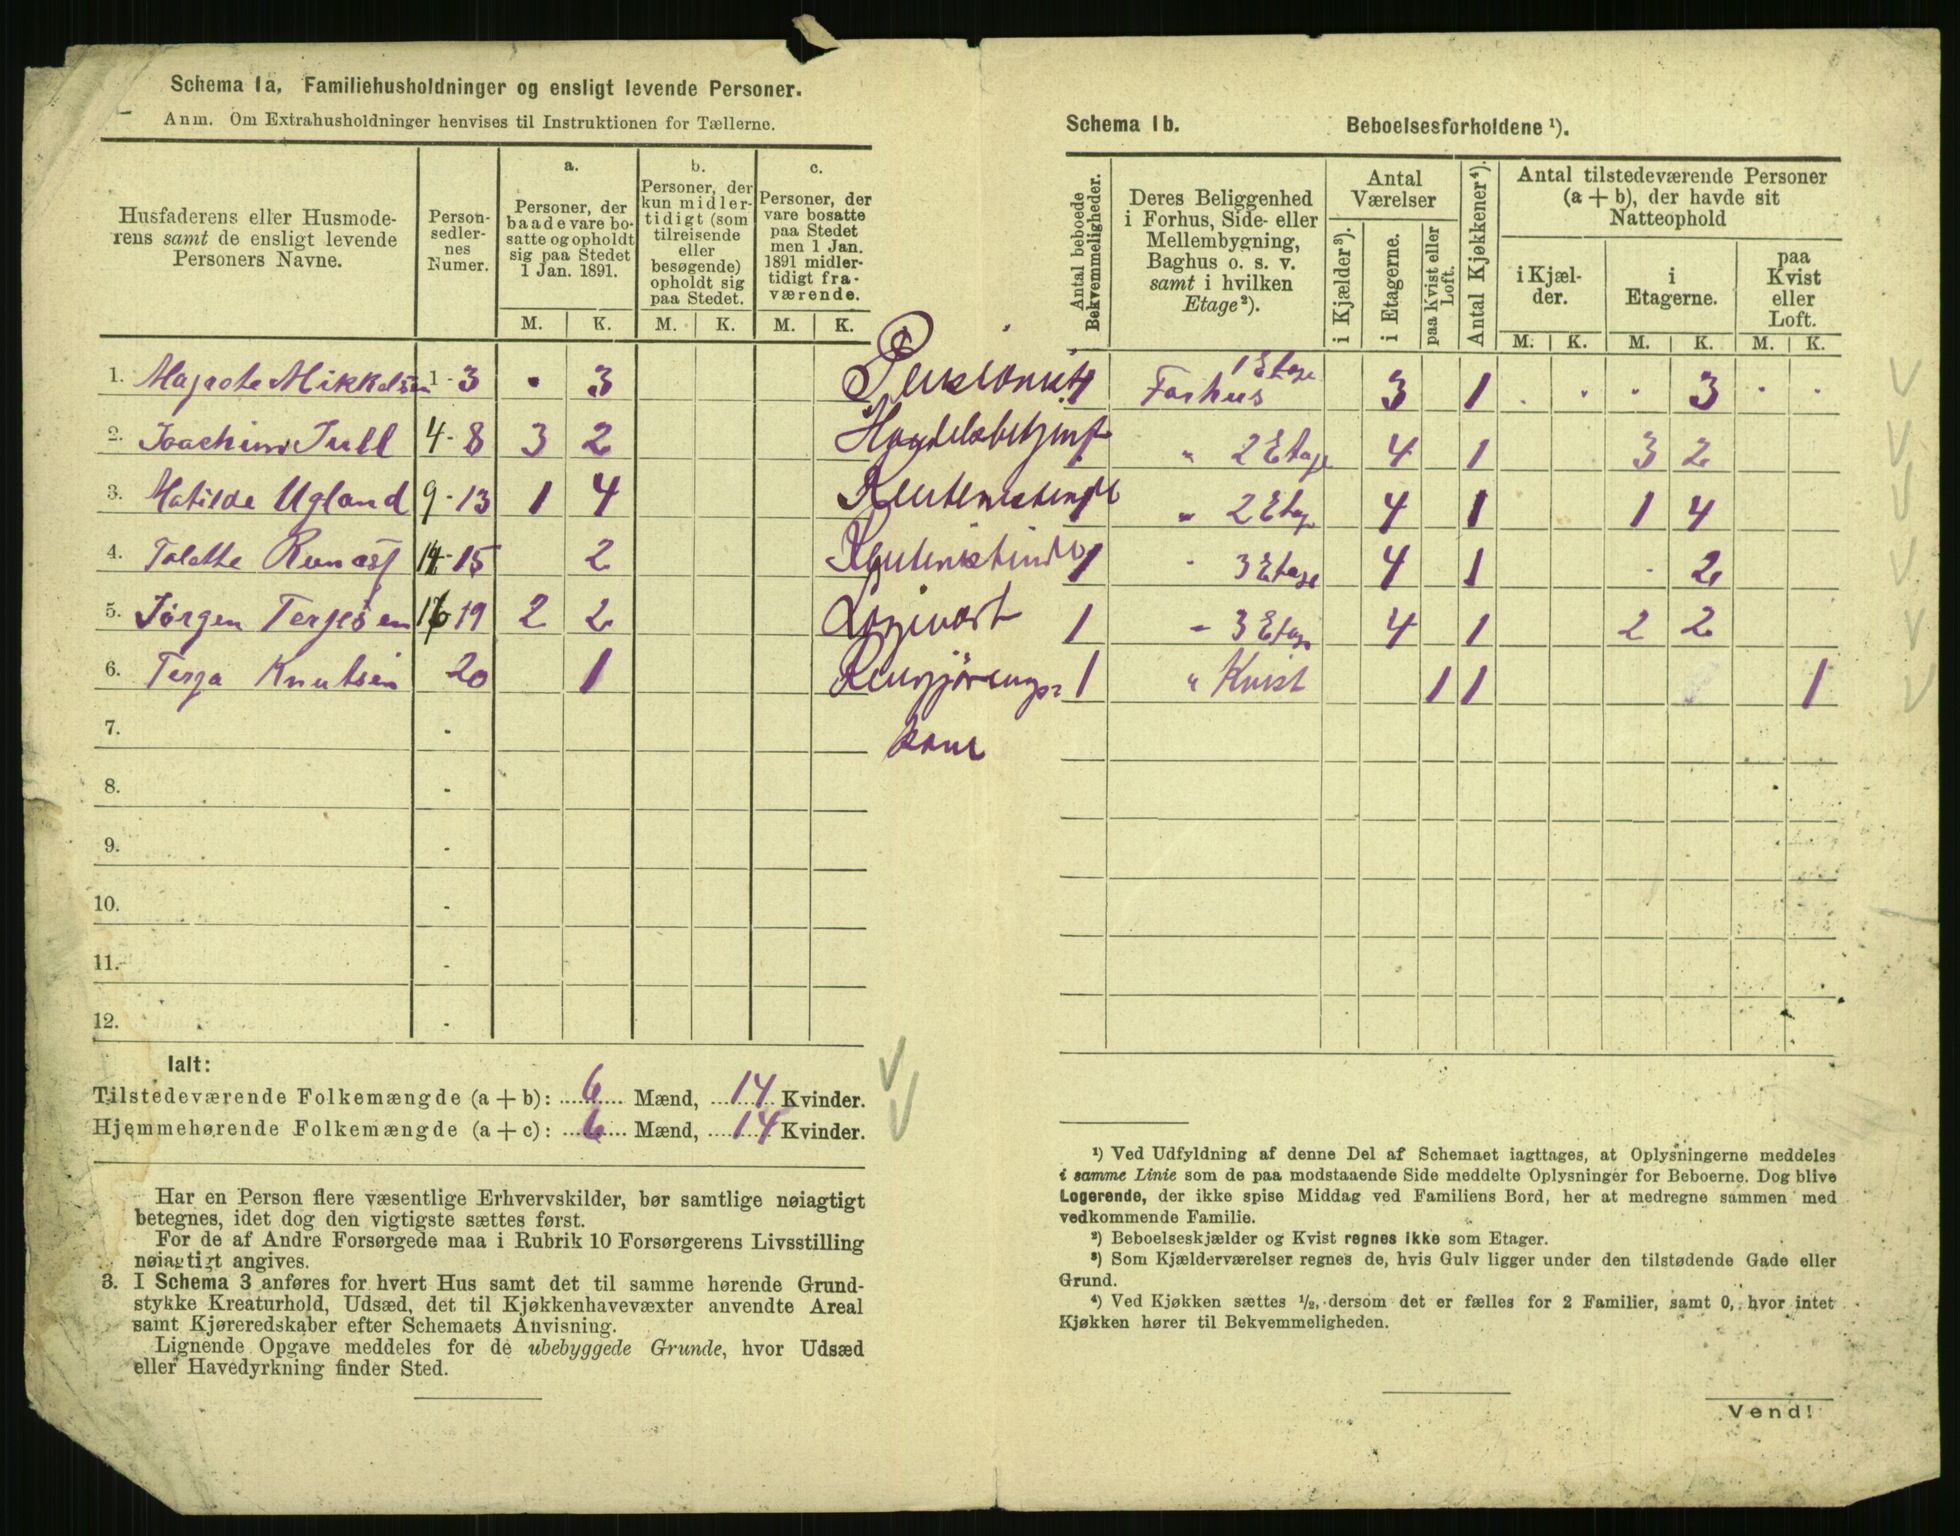 Schema 1a. Familiehusholdninger og ensligt levende Personer.
Anm. Om Extrahusholdninger henvises til Instruktionen for Tællerne.
Husfaderens eller Husmode-
rens samt de ensligt levende
Personers Navne.
Person-
sedler-
nes
Numer.
a.
Personer, der
baade vare bo-
satte og opholdt
sig paa Stedet
1 Jan. 1891.
b.
Personer, der
kun midler-
tidigt (som
tilreisende
eller
besøgende)
opholdt sig
paa Stedet.
c.
Personer, der
vare bosatte
paa Stedet
men 1 Jan.
1891 midler-
tidigt fra-
værende.
M. K. M. K. M. K.
1. Magrete Mikkelsen 1-3 • 3 Pensionist
2. Joachim Juell 4-8 3 2 Handelsbetjent
3. Matilde Ugland 9-13 1 4 Rentenistinde
4. Tolette 14-15 2 Rentenistinde
5. Jørgen Terjesen 16 19 2 2 Logivært
6. Terja Knutsen 20 1 Rengjørings-
kone
7. -
8. -
9. -
10. -
11. -
12. -
Ialt:
Tilstedeværende Folkemængde (a + b): 6 Mænd, 14 Kvinder.
Hjemmehørende Folkemængde (a + c): 6 Mænd, 14 Kvinder.
Har en Person flere væsentlige Erhvervskilder, bør samtlige nøiagtigt
betegnes, idet dog den vigtigste sættes først.
For de af Andre Forsørgede maa i Rubrik 10 Forsørgerens Livsstilling
nøiagtigt angives.
3. I Schema 3 anføres for hvert Hus samt det til samme hørende Grund-
stykke Kreaturhold, Udsæd, det til Kjøkkenhavevæxter anvendte Areal
samt Kjøreredskaber efter Schemaets Anvisning.
Lignende Opgave meddeles for de ubebyggede Grunde, hvor Udsæd
eller Havedyrkning finder Sted.
Schema 1b. Beboelsesforholdene ¹).
Antal beboede
Bekvemmeligheder.
Deres Beliggenhed
i Forhus, Side- eller
Mellembygning,
Baghus o. s. v.
samt i hvilken
Etage²).
Antal
Værelser
i Kjælder³).
i Etagerne.
paa Kvist eller
Loft.
Antal Kjøkkener⁴).
Antal tilstedeværende Personer
(a + b), der havde sit
Natteophold
i Kjæl-
der.
i
Etagerne.
paa
Kvist
eller
Loft.
M. K. M. K. M. K.
1 Forhus 1 Etage 3 1 . . . 3 . .
" 2 Etage 4 1 3 2
1 " 2 Etage 4 1 1 4
1 " 3 Etage 4 1 . 2
1 " 3 Etage 4 1 2 2
1 " Kvist 1 1 1
¹) Ved Udfyldning af denne Del af Schemaet iagttages, at Oplysningerne meddeles
i samme Linie som de paa modstaaende Side meddelte Oplysninger for Beboerne. Dog blive
Logerende, der ikke spise Middag ved Familiens Bord, her at medregne sammen med
vedkommende Familie.
²) Beboelseskjælder og Kvist regnes ikke som Etager.
³) Som Kjælderværelser regnes de, hvis Gulv ligger under den tilstødende Gade eller
Grund.
⁴) Ved Kjøkken sættes ½, dersom det er fælles for 2 Familier, samt 0, hvor intet
Kjøkken hører til Bekvemmeligheden.
Vend!